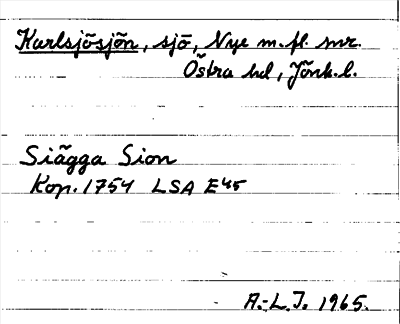 Karlsjösjön, sjö, Nye m.fl. snr.
Östra hd, Jönk.l.
Siägga Sion
Kop. 1754 LSA E45
A.-L.J. 1965.